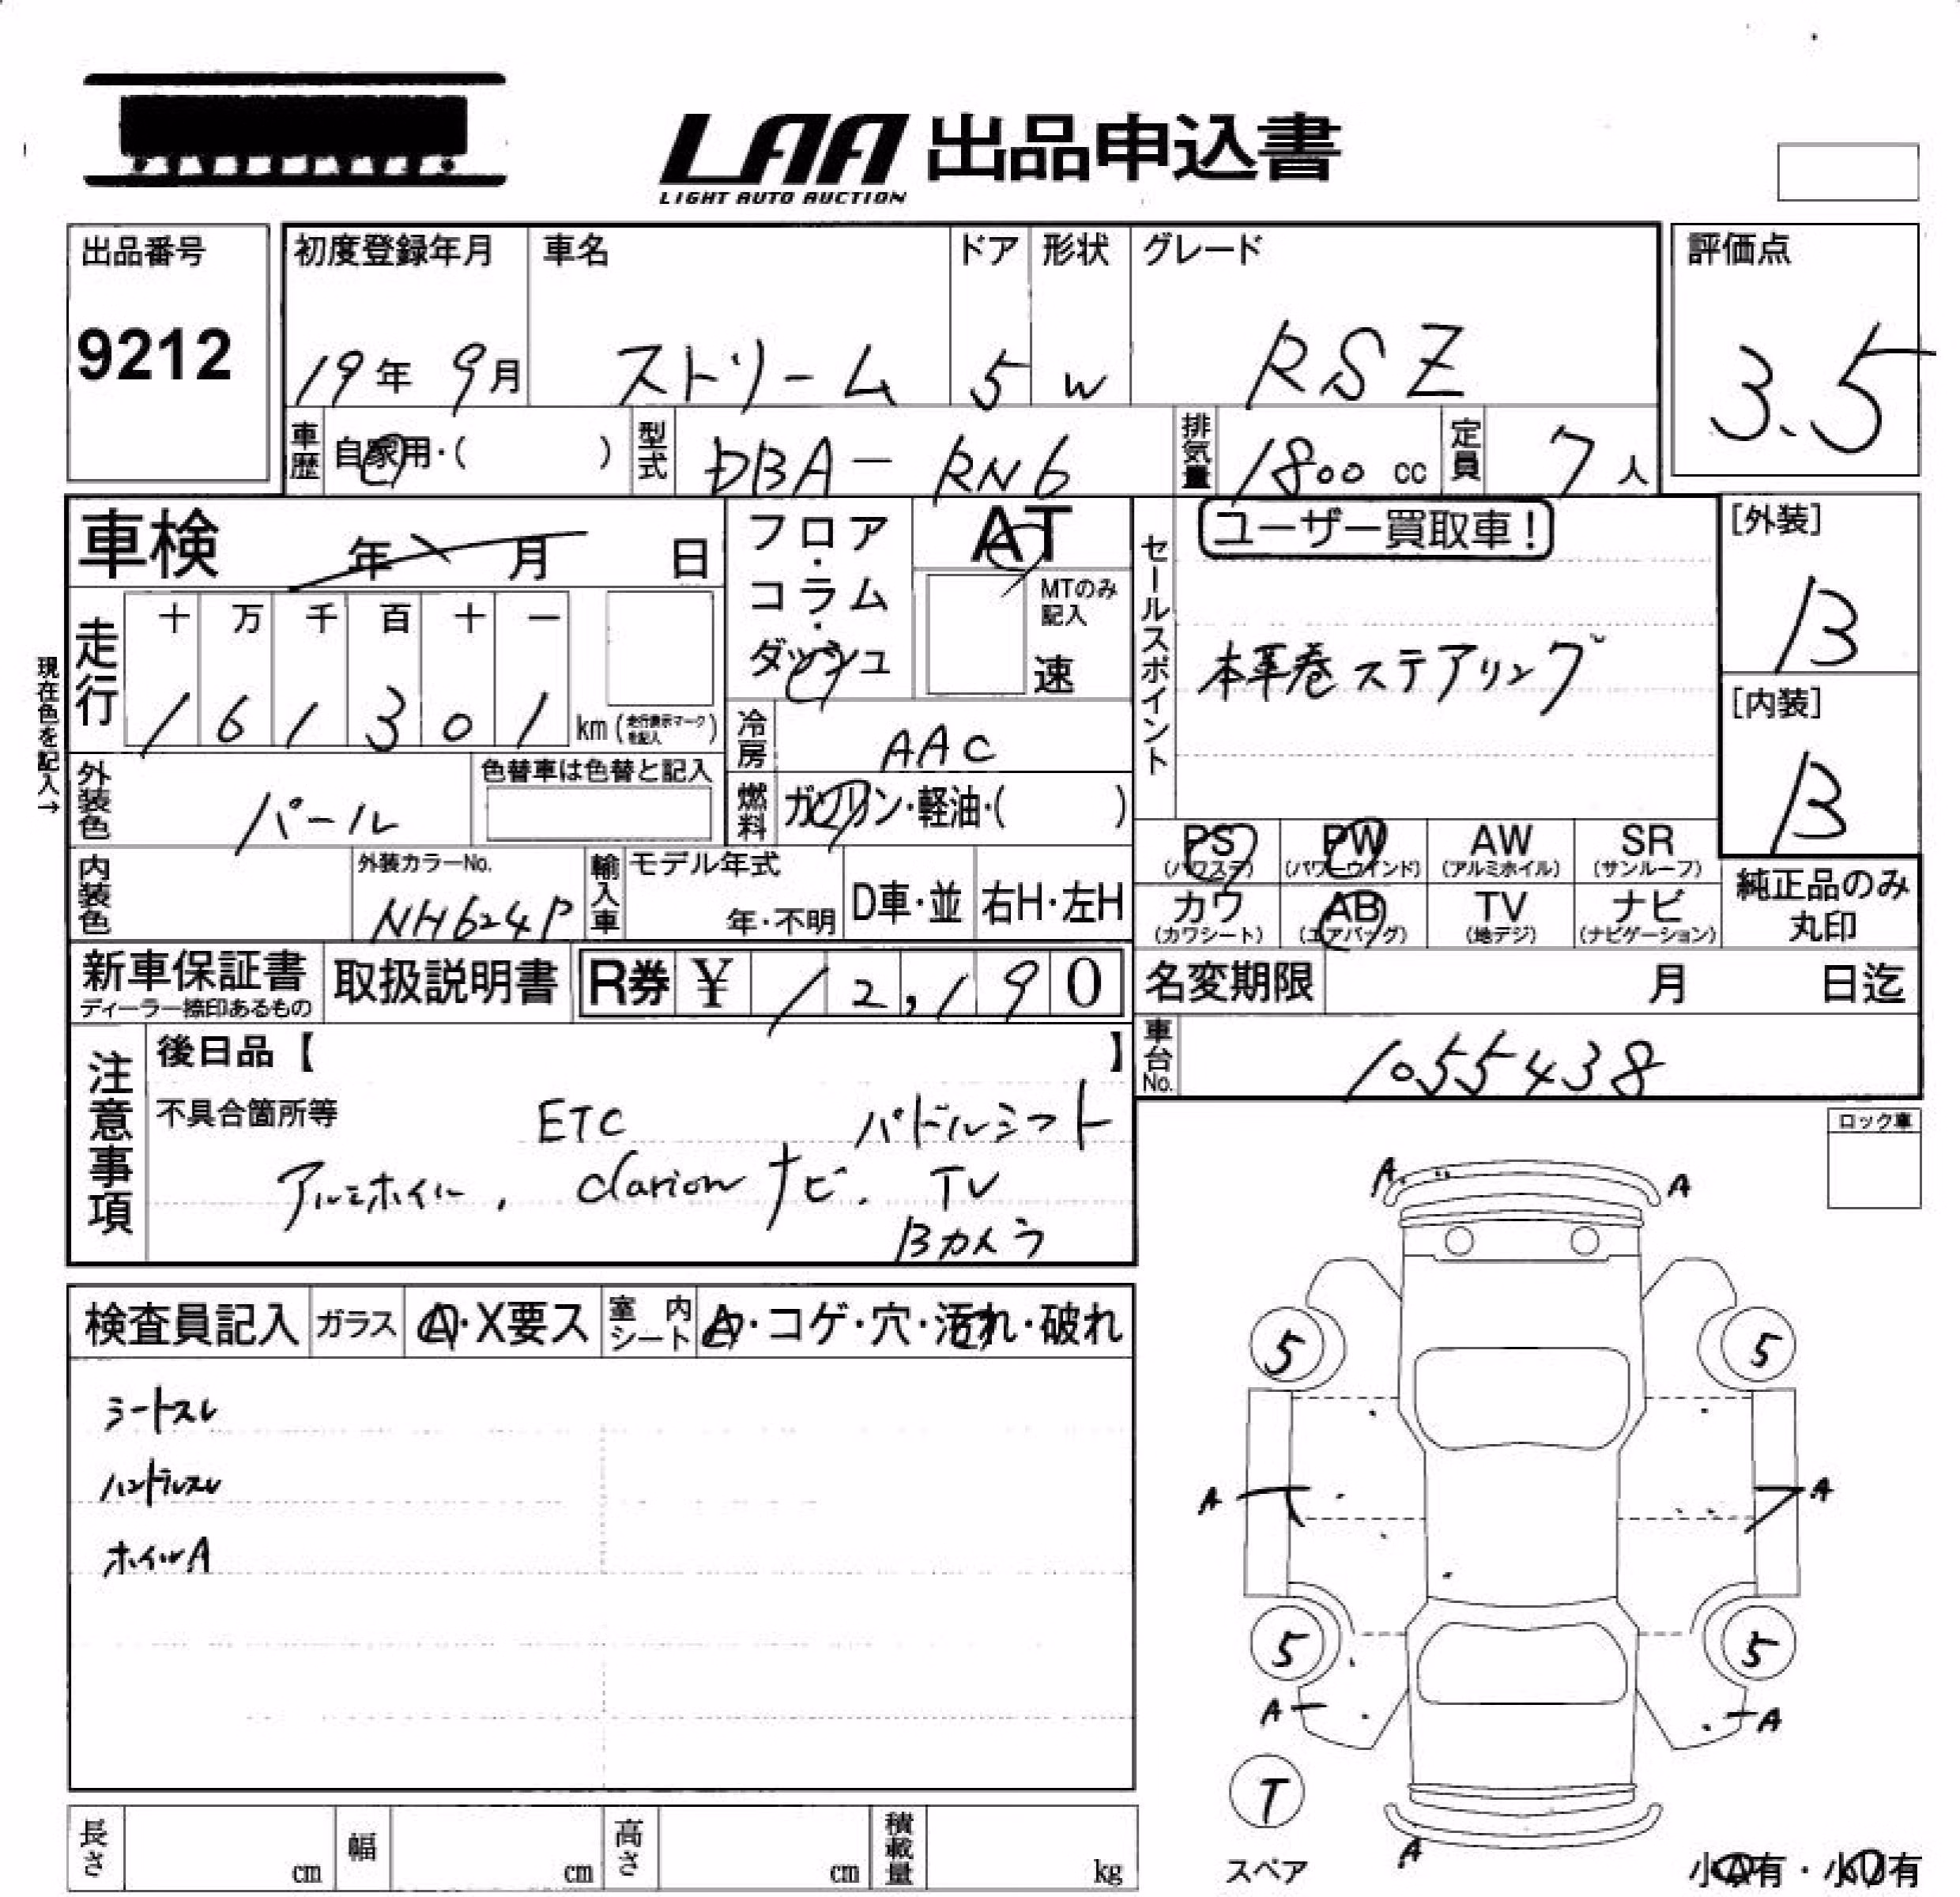 LAA 出品申込書
LIGHT AUTO AUCTION
出品番号
9212
初度登録年月
19年 9月
車名
ストリーム
ドア
5
形状
W
グレード
RSZ
評価点
3.5
車歴
自家用・( )
型式
DBA-RN6
排気量
1800 cc
定員
7 人
車検 年 月 日
フロア・コラム・ダッシュ
AT
MTのみ記入
速
セールスポイント
ユーザー買取車!
本革巻ステアリング
[外装]
B
[内装]
B
現在色を記入→
走行
十 万 千 百 十 一
1 6 1 3 0 1 km (走行表示マークを記入)
冷房
AAC
外装色
パール
色替車は色替と記入
燃料
ガソリン・軽油・( )
PS
(パワステ)
PW
(パワーウインド)
AW
(アルミホイル)
SR
(サンルーフ)
内装色
外装カラーNo.
NH624P
輸入車
モデル年式
年・不明
D車・並
右H・左H
カワ
(カワシート)
AB
(エアバッグ)
TV
(地デジ)
ナビ
(ナビゲーション)
純正品のみ
丸印
新車保証書
ディーラー捺印あるもの
取扱説明書
R券 ¥ 12,190
名変期限 月 日迄
車台No.
1055438
注意事項
後日品【 】
不具合箇所等
ETC パドルシフト
アルミホイル, Clarion ナビ. TV
Bカメラ
ロック車
検査員記入
ガラス
A・X要ス
室内シート
A・コゲ・穴・汚れ・破れ
シートスレ
ハンドルスレ
ホイルA
A A
5 5
A A
5 5
A A
T
スペア
A
小A有・小U有
長さ cm
幅 cm
高さ cm
積載量 kg